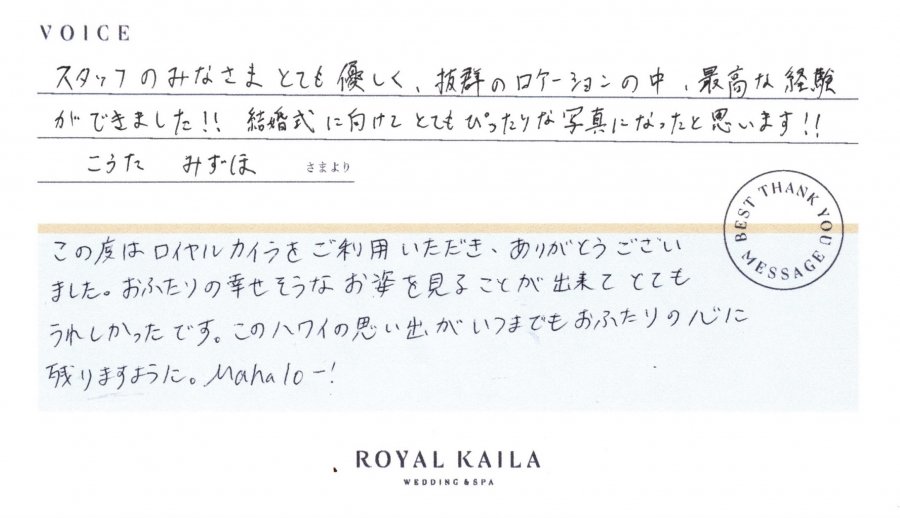 VOICE
スタッフのみなさま とても 優しく、抜群のロケーションの中、最高な経験
ができました!! 結婚式に向けて とても ぴったりな写真になったと思います!!
こうた みずほ さまより
BEST THANK YOU MESSAGE
この度はロイヤルカイラをご利用いただき、ありがとうござい
ました。おふたりの幸せそうなお姿を見ることが出来てとても
うれしかったです。このハワイの思い出がいつまでもおふたりの心に
残りますように。Mahaloー!
ROYAL KAILA
WEDDING & SPA